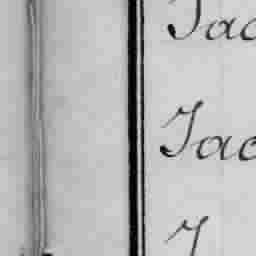 Jac
Jac
J